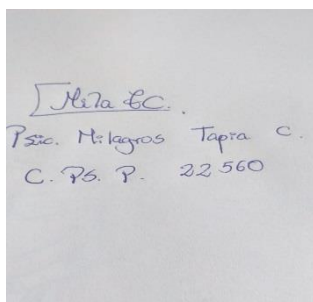 Mila TC.
Psic. Milagros Tapia C.
C. Ps. P. 22560